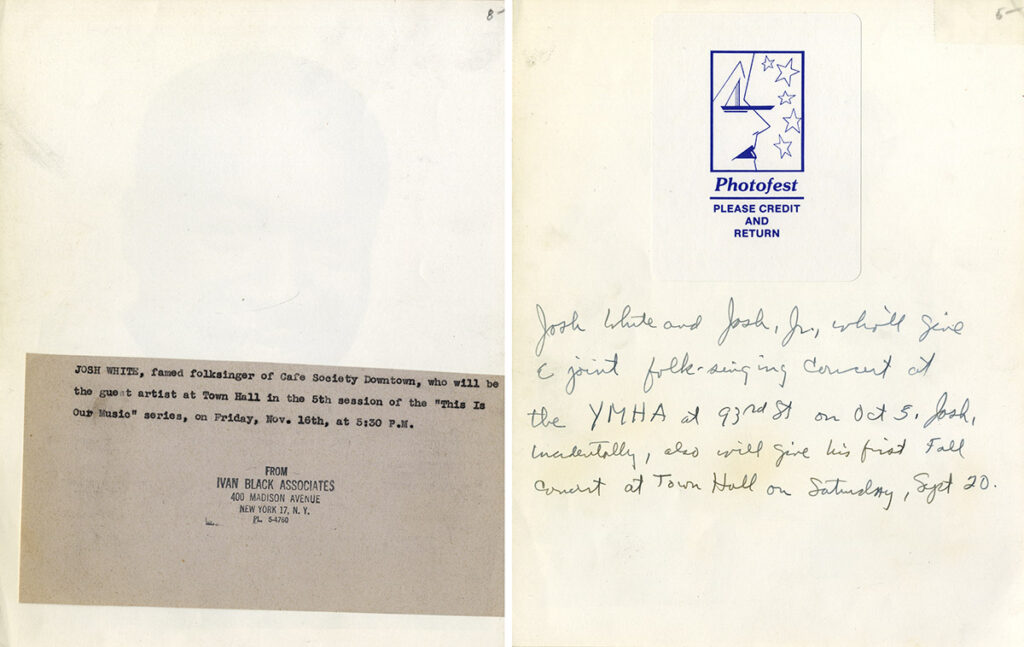 8-
JOSH WHITE, famed folksinger of Cafe Society Downtown, who will be
the guest artist at Town Hall in the 5th session of the "This Is
Our Music" series, on Friday, Nov. 16th, at 5:30 P.M.
FROM
IVAN BLACK ASSOCIATES
400 MADISON AVENUE
NEW YORK 17, N. Y.
PL. 5-4760
5-
Photofest
PLEASE CREDIT
AND
RETURN
Josh White and Josh, Jr., who'll give
a joint folk-singing concert at
the YMHA at 93rd St on Oct 5. Josh,
incidentally, also will give his first Fall
concert at Town Hall on Saturday, Sept 20.